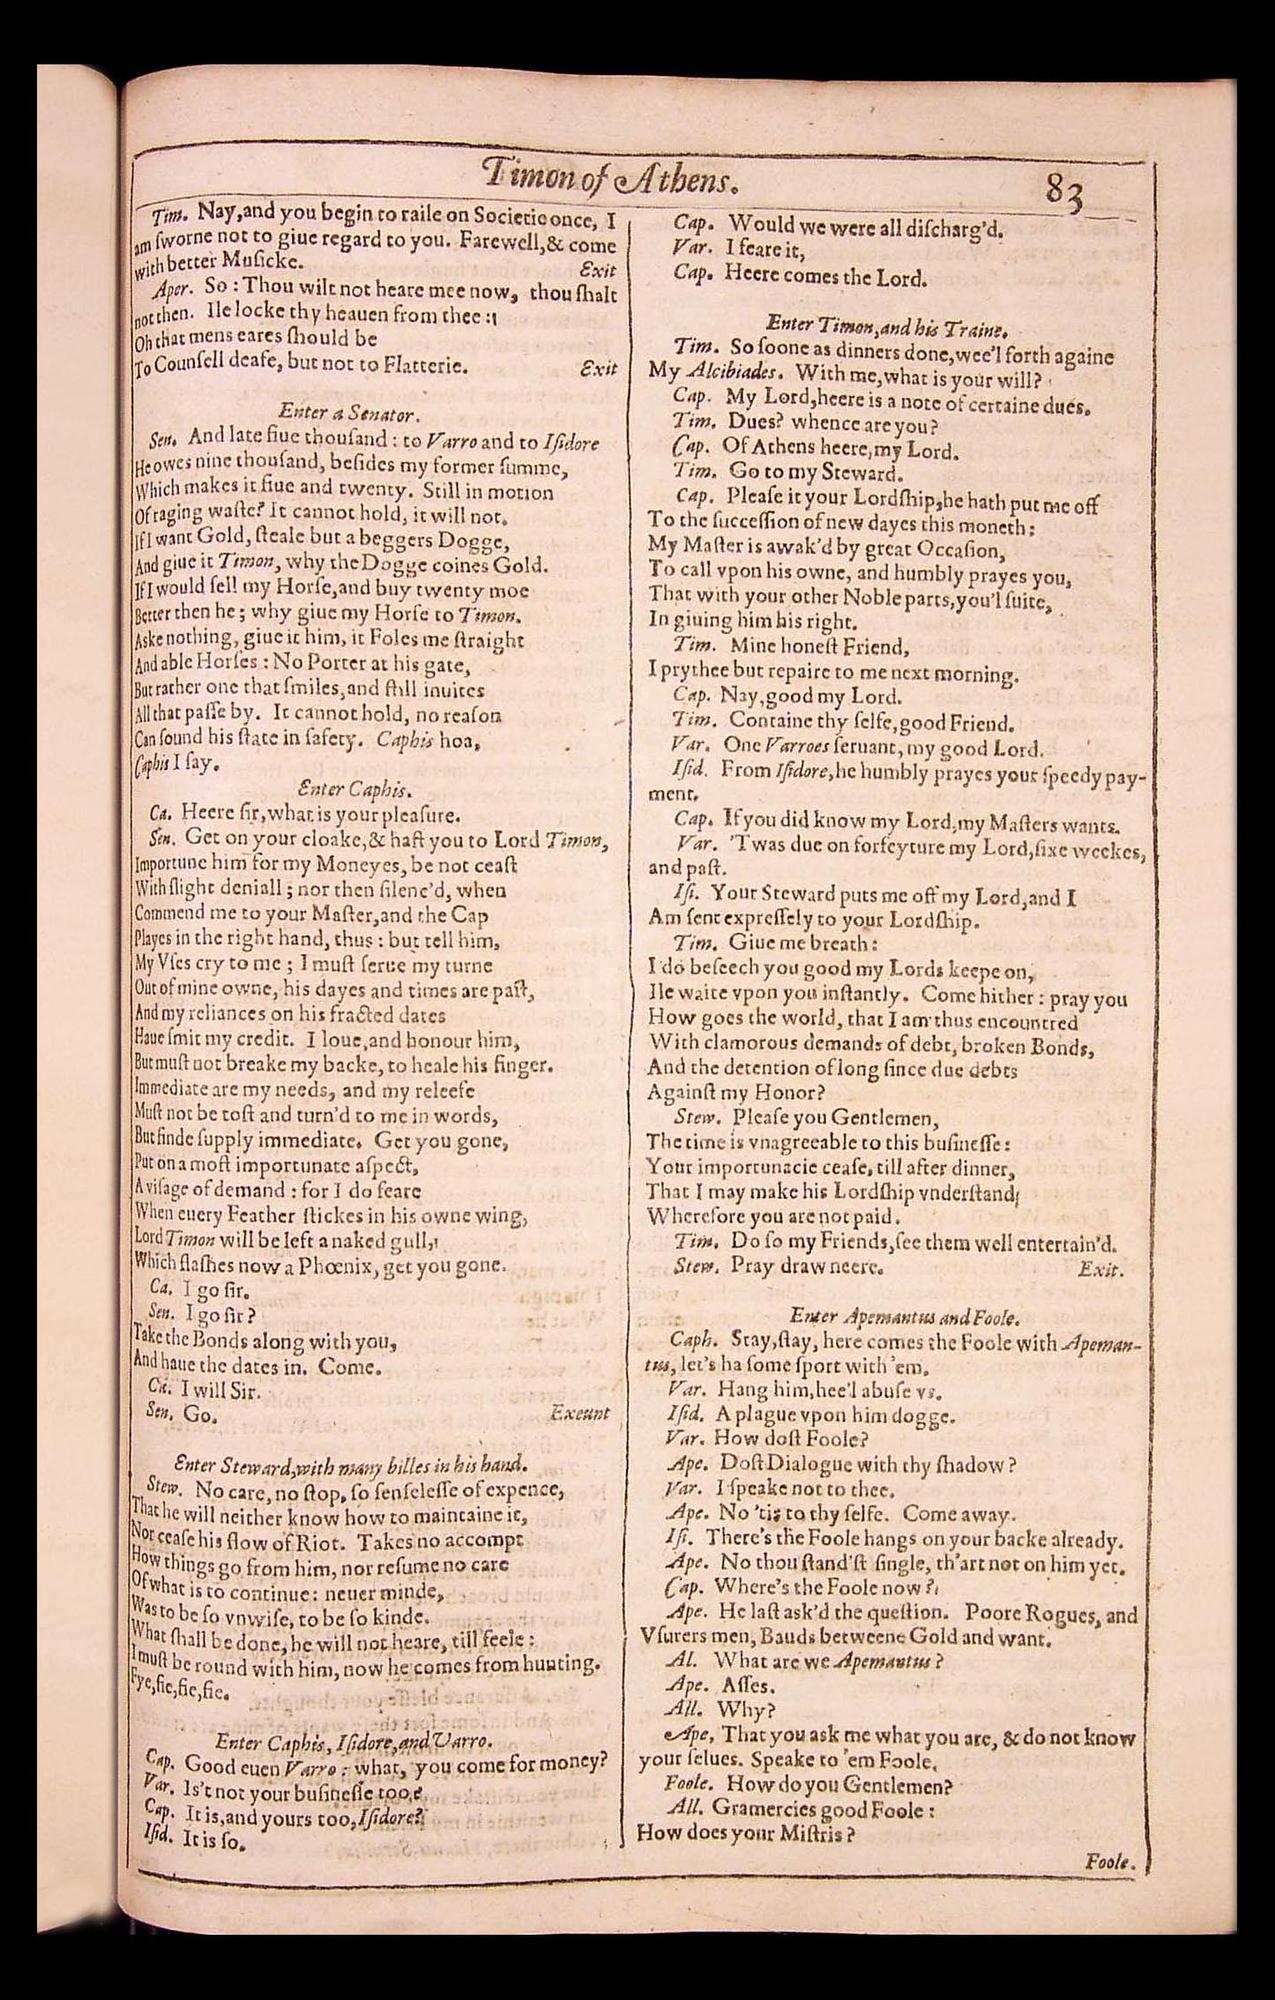 Timon of Athens.
83
Tim. Nay,and you begin to raile on Societie once, I
am ſworne not to giue regard to you. Farewell,& come
with better Muſicke.
Exit
Aper. So : Thou wilt not heare mee now, thou ſhalt
not then. Ile locke thy heauen from thee :
Oh that mens eares ſhould be
To Counſell deafe, but not to Flatterie.
Exit
Enter a Senator.
Sen. And late fiue thouſand : to Varro and to Iſidore
He owes nine thouſand, beſides my former ſumme,
Which makes it fiue and twenty. Still in motion
Of raging waſte? It cannot hold, it will not.
If I want Gold, ſteale but a beggers Dogge,
And giue it Timon, why the Dogge coines Gold.
If I would ſell my Horſe,and buy twenty moe
Better then he ; why giue my Horſe to Timon.
Aske nothing, giue it him, it Foles me ſtraight
And able Horſes : No Porter at his gate,
But rather one that ſmiles,and ſtill inuites
All that paſſe by. It cannot hold, no reaſon
Can ſound his ſtate in ſafety. Caphis hoa,
Caphis I ſay.
Enter Caphis.
Ca. Heere ſir,what is your pleaſure.
Sen. Get on your cloake,& haſt you to Lord Timon,
Importune him for my Moneyes, be not ceaſt
With ſlight deniall ; nor then ſilenc'd, when
Commend me to your Maſter,and the Cap
Playes in the right hand, thus : but tell him,
My Vſes cry to me ; I muſt ſerue my turne
Out of mine owne, his dayes and times are paſt,
And my reliances on his fracted dates
Haue ſmit my credit. I loue,and honour him,
But muſt not breake my backe, to heale his finger.
Immediate are my needs, and my releefe
Muſt not be toſt and turn'd to me in words,
But finde ſupply immediate. Get you gone,
Put on a moſt importunate aſpect,
A viſage of demand : for I do feare
When euery Feather ſtickes in his owne wing,
Lord Timon will be left a naked gull,
Which flaſhes now a Phœnix, get you gone.
Ca. I go ſir.
Sen. I go ſir ?
Take the Bonds along with you,
And haue the dates in. Come.
Ca. I will Sir.
Sen. Go.
Exeunt
Enter Steward,with many billes in his hand.
Stew. No care, no ſtop, ſo ſenſeleſſe of expence,
That he will neither know how to maintaine it,
Nor ceaſe his flow of Riot. Takes no accompt
How things go from him, nor reſume no care
Of what is to continue : neuer minde,
Was to be ſo vnwiſe, to be ſo kinde.
What ſhall be done, he will not heare, till feele :
I muſt be round with him, now he comes from hunting.
Fye,fie,fie,fie.
Enter Caphis, Iſidore,and Varro.
Cap. Good euen Varro : what, you come for money?
Var. Is't not your buſineſſe too?
Cap. It is,and yours too,Iſidore?
Iſid. It is ſo.
Cap. Would we were all diſcharg'd.
Var. I feare it,
Cap. Heere comes the Lord.
Enter Timon,and his Traine.
Tim. So ſoone as dinners done,wee'l forth againe
My Alcibiades. With me,what is your will?
Cap. My Lord,heere is a note of certaine dues.
Tim. Dues? whence are you?
Cap. Of Athens heere,my Lord.
Tim. Go to my Steward.
Cap. Pleaſe it your Lordſhip,he hath put me off
To the ſucceſſion of new dayes this moneth :
My Maſter is awak'd by great Occaſion,
To call vpon his owne, and humbly prayes you,
That with your other Noble parts,you'l ſuite,
In giuing him his right.
Tim. Mine honeſt Friend,
I prythee but repaire to me next morning.
Cap. Nay,good my Lord.
Tim. Containe thy ſelfe,good Friend.
Var. One Varroes ſeruant, my good Lord.
Iſid. From Iſidore,he humbly prayes your ſpeedy pay-
ment.
Cap. If you did know my Lord,my Maſters wants.
Var. 'Twas due on forfeyture my Lord,ſixe weekes,
and paſt.
Iſi. Your Steward puts me off my Lord,and I
Am ſent expreſſely to your Lordſhip.
Tim. Giue me breath :
I do beſeech you good my Lords keepe on,
Ile waite vpon you inſtantly. Come hither : pray you
How goes the world, that I am thus encountred
With clamorous demands of debt, broken Bonds,
And the detention of long ſince due debts
Againſt my Honor?
Stew. Pleaſe you Gentlemen,
The time is vnagreeable to this buſineſſe :
Your importunacie ceaſe, till after dinner,
That I may make his Lordſhip vnderſtand
Wherefore you are not paid.
Tim. Do ſo my Friends,ſee them well entertain'd.
Stew. Pray draw neere.
Exit.
Enter Apemantus and Foole.
Caph. Stay,ſtay, here comes the Foole with Apeman-
tus, let's ha ſome ſport with 'em.
Var. Hang him,hee'l abuſe vs.
Iſid. A plague vpon him dogge.
Var. How doſt Foole?
Ape. Doſt Dialogue with thy ſhadow ?
Var. I ſpeake not to thee.
Ape. No 'tis to thy ſelfe. Come away.
Iſi. There's the Foole hangs on your backe already.
Ape. No thou ſtand'ſt ſingle, th'art not on him yet.
Cap. Where's the Foole now ?
Ape. He laſt ask'd the queſtion. Poore Rogues, and
Vſurers men, Bauds betweene Gold and want.
Al. What are we Apemantus ?
Ape. Aſſes.
All. Why?
Ape, That you ask me what you are, & do not know
your ſelues. Speake to 'em Foole.
Foole. How do you Gentlemen?
All. Gramercies good Foole :
How does your Miſtris ?
Foole.